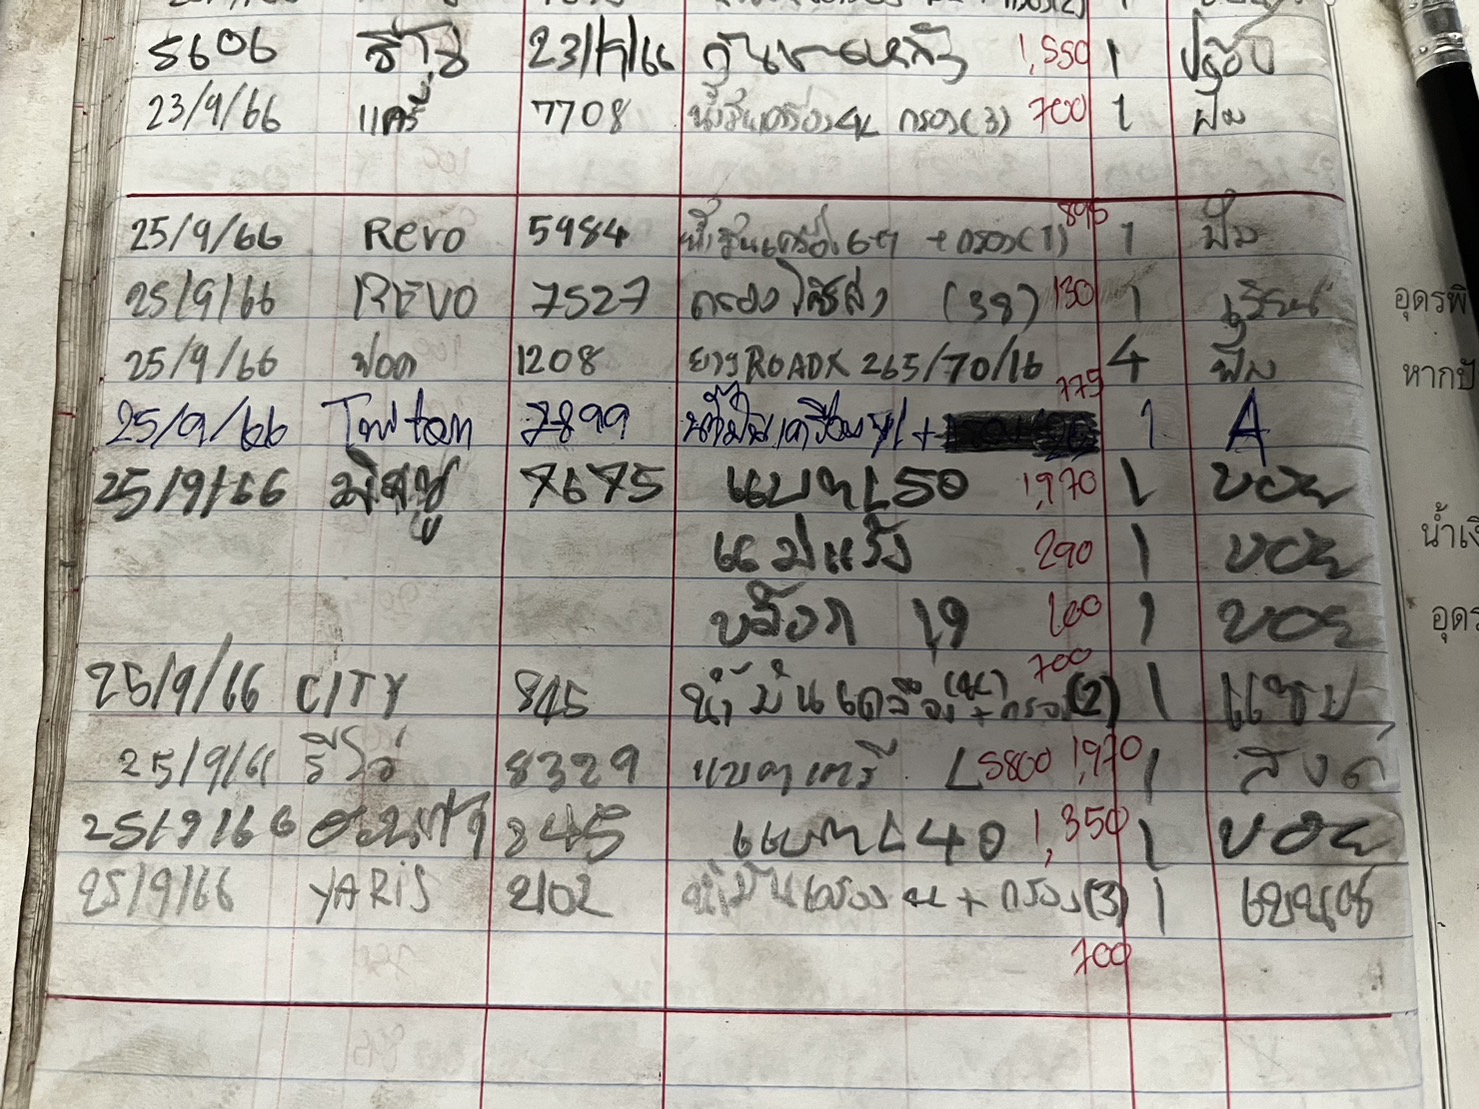 5606 23/9/66 1,550 1
23/9/66 แครี่ 7708 น้ำมันเครื่อง 4L กรอง(3) 700 1 ฟิม
895
25/9/66 Revo 5984 น้ำมันเครื่อง + กรอง(1) 1 ฟิม
25/9/66 REVO 7527 กรองโซล่า (38) 130 1
25/9/66 ฟอด 1208 ยาง ROADX 265/70/16 4 ฟิม
775
25/9/66 7899 น้ำมันเครื่อง + 1 A
25/9/66 มิตซู 7675 แบตL50 1,970 1 บอย
แม่แรง 290 1 บอย
บล๊อก 19 100 1 บอย
700
25/9/66 CITY 845 น้ำมันเครื่อง(4L) + กรอง(2) 1 แชมป
25/9/66 รีโว่ 8329 แบตเตรี L5800 1,970 1
25/9/66 845 แบตL40 1,350 1 บอย
25/9/66 YARiS 2102 น้ำมันเครื่อง 4L + กรอง(3) 1
700
อุดรพิ
หากปั
น้ำเงิ
อุดร